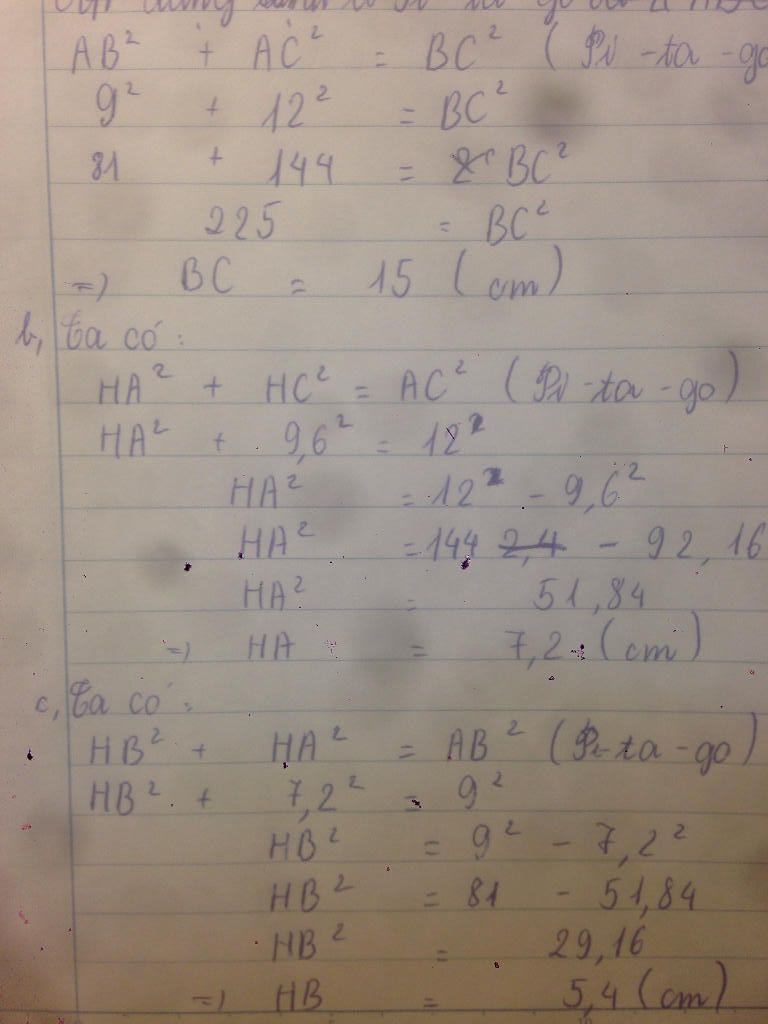 AB² + AC² = BC² (Pi-ta-go
9² + 12² = BC²
81 + 144 = BC²
225 = BC²
=> BC = 15 (cm)
b, Ta có:
HA² + HC² = AC² (Pi-ta-go)
HA² + 9,6² = 12²
HA² = 12² - 9,6²
HA² = 144 2,4 - 92,16
HA² = 51,84
=> HA = 7,2 (cm)
c, Ta có:
HB² + HA² = AB² (Pi-ta-go)
HB² + 7,2² = 9²
HB² = 9² - 7,2²
HB² = 81 - 51,84
HB² = 29,16
=> HB = 5,4 (cm)